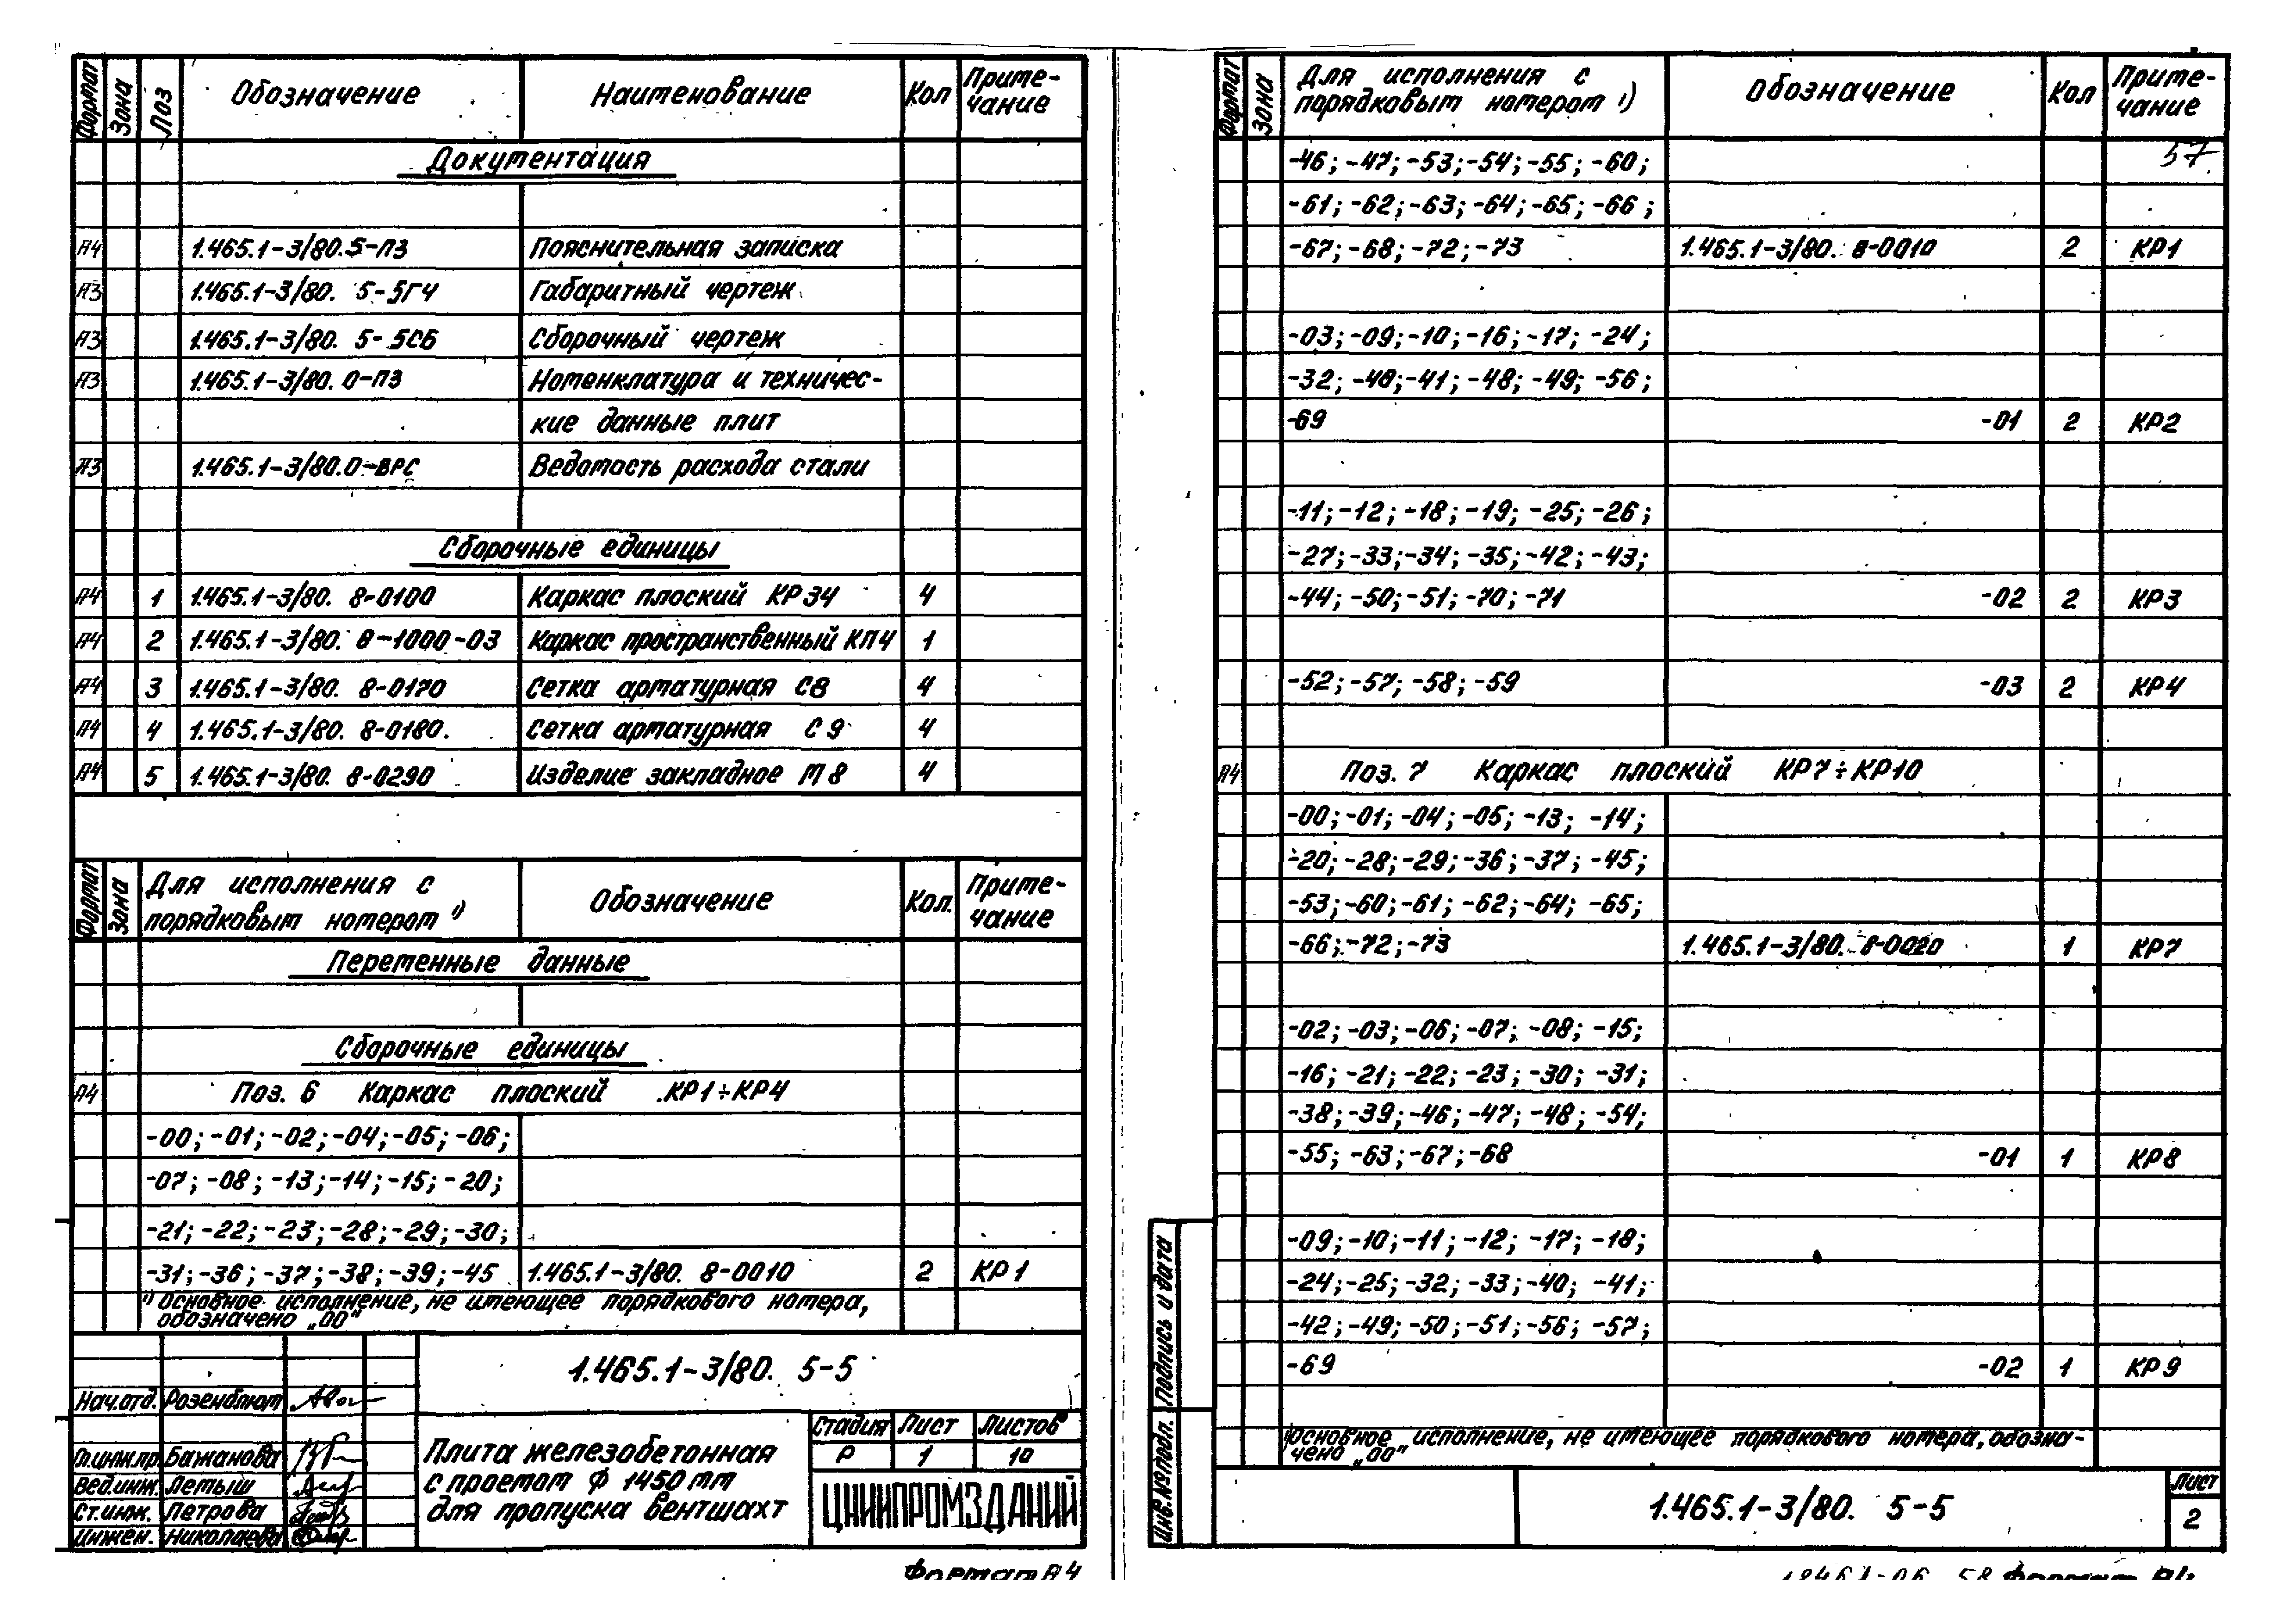 Формат Зона Поз Обозначение Наименование Кол Приме-
чание
Документация
А4 1.465.1-3/80.5-ПЗ Пояснительная записка
А3 1.465.1-3/80. 5-5ГЧ Габаритный чертеж
А3 1.465.1-3/80. 5-5СБ Сборочный чертеж
А3 1.465.1-3/80. 0-ПЗ Номенклатура и техничес-
кие данные плит
А3 1.465.1-3/80.0-ВРС Ведомость расхода стали
Сборочные единицы
А4 1 1.465.1-3/80. 8-0100 Каркас плоский КР34 4
А4 2 1.465.1-3/80. 8-1000-03 Каркас пространственный КП4 1
А4 3 1.465.1-3/80. 8-0170 Сетка арматурная С8 4
А4 4 1.465.1-3/80. 8-0180. Сетка арматурная С9 4
А4 5 1.465.1-3/80. 8-0290 Изделие закладное М8 4
Формат Зона Для исполнения с
порядковым номером ¹) Обозначение Кол. Приме-
чание
Переменные данные
Сборочные единицы
А4 Поз. 6 Каркас плоский КР1÷КР4
-00; -01; -02; -04; -05; -06;
-07; -08; -13; -14; -15; -20;
-21; -22; -23; -28; -29; -30;
-31; -36; -37; -38; -39; -45 1.465.1-3/80. 8-0010 2 КР1
¹) Основное исполнение, не имеющее порядкового номера,
обозначено „00"
1.465.1-3/80. 5-5
Нач.отд. Розенблюм
Гл.инж.пр. Бажанова
Вед.инж. Летыш
Ст.инж. Петрова
Инжен. Николаева
Плита железобетонная
с проемом ф 1450 мм
для пропуска вентшахт
Стадия Лист Листов
Р 1 10
ЦНИИПРОМЗДАНИЙ
Формат А4
Формат Зона Для исполнения с
порядковым номером ¹) Обозначение Кол Приме-
чание
57
-46; -47; -53; -54; -55; -60;
-61; -62; -63; -64; -65; -66;
-67; -68; -72; -73 1.465.1-3/80. 8-0010 2 КР1
-03; -09; -10; -16; -17; -24;
-32; -40; -41; -48; -49; -56;
-69 -01 2 КР2
-11; -12; -18; -19; -25; -26;
-27; -33; -34; -35; -42; -43;
-44; -50; -51; -70; -71 -02 2 КР3
-52; -57; -58; -59 -03 2 КР4
А4 Поз. 7 Каркас плоский КР7÷КР10
-00; -01; -04; -05; -13; -14;
-20; -28; -29; -36; -37; -45;
-53; -60; -61; -62; -64; -65;
-66; -72; -73 1.465.1-3/80. 8-0020 1 КР7
-02; -03; -06; -07; -08; -15;
-16; -21; -22; -23; -30; -31;
-38; -39; -46; -47; -48; -54;
-55; -63; -67; -68 -01 1 КР8
-09; -10; -11; -12; -17; -18;
-24; -25; -32; -33; -40; -41;
-42; -49; -50; -51; -56; -57;
-69 -02 1 КР9
¹)Основное исполнение, не имеющее порядкового номера, обозна-
чено „00"
Инв.№ подл. Подпись и дата
1.465.1-3/80. 5-5
Лист
2
18461-06 58 Формат А4